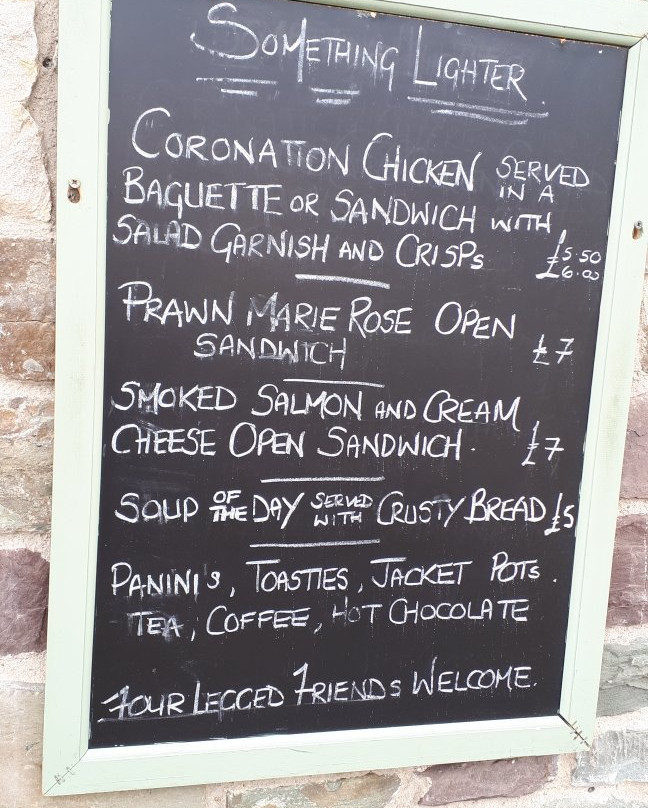 SOMETHING LIGHTER.
CORONATION CHICKEN SERVED IN A
BAGUETTE OR SANDWICH WITH
SALAD GARNISH AND CRISPS £5.50 £6.00
PRAWN MARIE ROSE OPEN
SANDWICH £7
SMOKED SALMON AND CREAM
CHEESE OPEN SANDWICH. £7
SOUP OF THE DAY SERVED WITH CRUSTY BREAD £5
PANINI'S, TOASTIES, JACKET POTS.
TEA, COFFEE, HOT CHOCOLATE
FOUR LEGGED FRIENDS WELCOME.